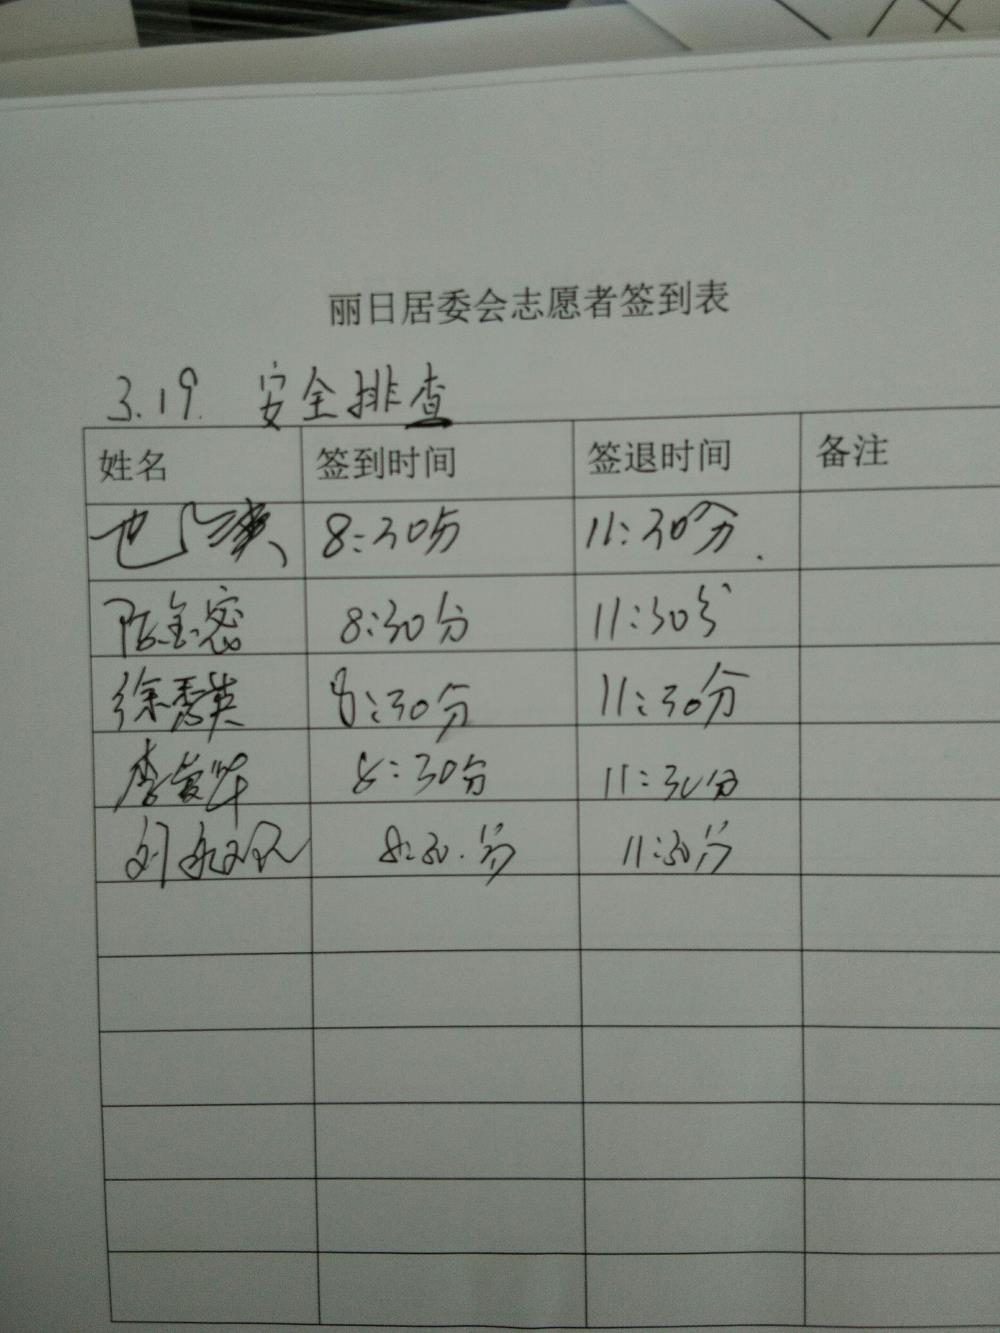 丽日居委会志愿者签到表
3.19. 安全排查
姓名 签到时间 签退时间 备注
8:30分 11:30分.
陈金宓 8:30分 11:30分
徐秀英 8:30分 11:30分
李爱华 8:30分 11:30分
刘 8:30.分 11:30分